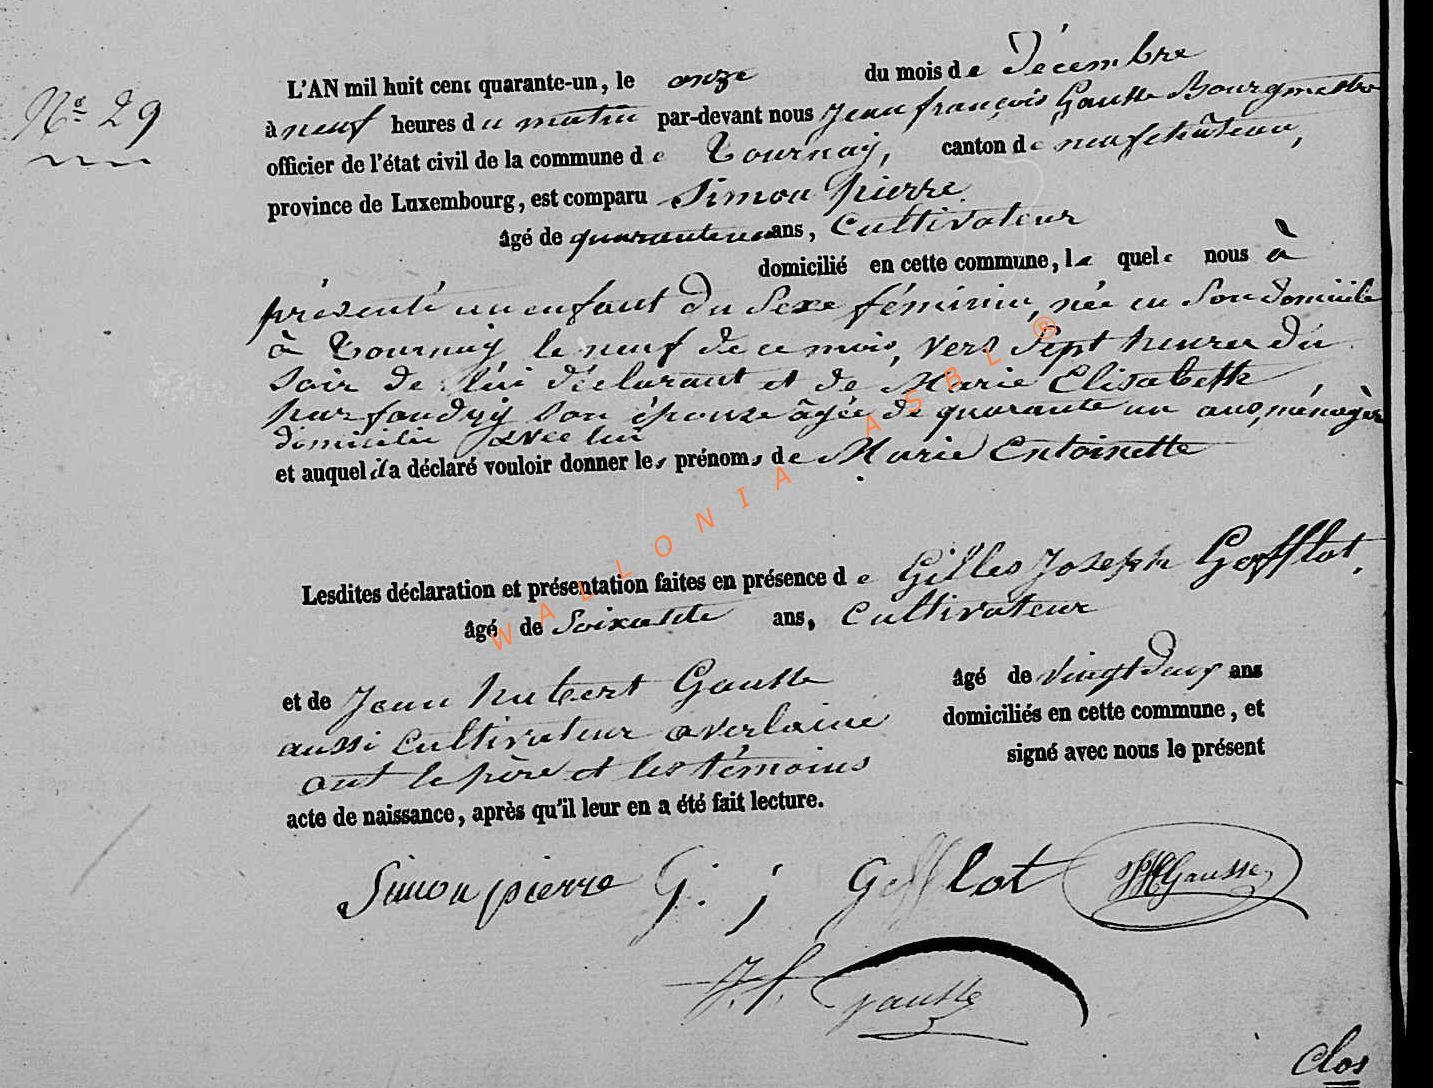 N.º 29
L'AN mil huit cent quarante-un, le onze du mois de Décembre
à neuf heures du matin par-devant nous Jean françois Gausse Bourgmestre
officier de l'état civil de la commune de Tournay, canton de neufchâteau,
province de Luxembourg, est comparu Simon pierre
âgé de quarante ans, Cultivateur
domicilié en cette commune, le quel nous à
présenté un enfant du Sexe féminin, née en Son domicile
à Tournay, le neuf de ce mois, vers Sept heures du
Soir de lui déclarant et de Marie Elisabeth
parfondry Son épouse âgée de quarante un ans, ménagère
domiciliée avec lui
et auquel il a déclaré vouloir donner les prénoms de Marie Entoinette
Lesdites déclaration et présentation faites en présence de Gilles Joseph Gofflot,
âgé de Soixante ans, Cultivateur
et de Jean hubert Gausse âgé de vingt deux ans
aussi Cultivateur a verlaine domiciliés en cette commune, et
ont le père et les témoins signé avec nous le présent
acte de naissance, après qu'il leur en a été fait lecture.
Simon pierre G. j Gofflot JH Gausse
J. f. Gausse
Clos
WALLONIA ASBL ®